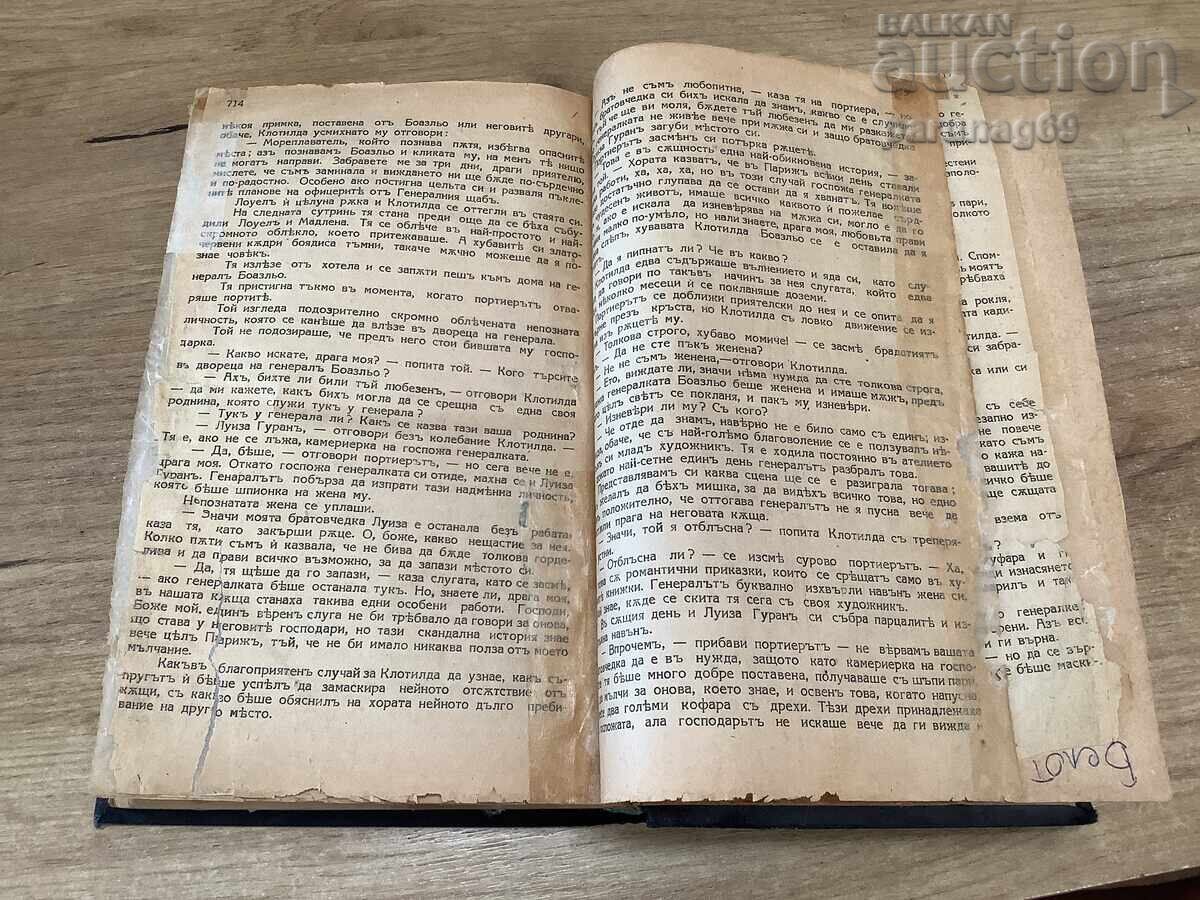 BALKAN
auction
parannag69
714
нѣкоя примка, поставена отъ Боазльо или неговитѣ другари,
обаче, Клотилда усмихнато му отговори:
— Мореплаватель, който познава пѫтя, избѣгва опаснитѣ
мѣста; азъ познавамъ Боазльо и кликата му, на менъ тѣ нищо
не могатъ направи. Забравете ме за три дни, драги приятелю,
мислете, че съмъ заминала и виждането ни ще бѫде по-сърдечно
и по-радостно. Особено ако постигна цельта си и разваля пъкле-
нитѣ планове на офицеритѣ отъ Генералния щабъ.
Лоуелъ ѝ цѣлуна рѫка и Клотилда се оттегли въ стаята си.
На следната сутринь тя стана преди още да се бѣха събу-
дили Лоуелъ и Мадлена. Тя се облѣче въ най-простото и най-
скромното облѣкло, което притежаваше. А хубавитѣ си злато-
червени кѫдри боядиса тъмни, такава мѫчно можеше да я по-
знае човѣкъ.
Тя излѣзе отъ хотела и се запѫти пешъ къмъ дома на ге-
нералъ Боазльо.
Тя пристигна тъкмо въ момента, когато портиерътъ отва-
ряше портитѣ.
Той изгледа подозрително скромно облѣчената непозната
личность, която се канѣше да влѣзе въ двореца на генерала.
Той не подозираше, че предъ него стои бившата му госпо-
дарка.
— Какво искате, драга моя? — попита той. — Кого търсите
въ двореца на генералъ Боазльо?
— Ахъ, бихте ли били тъй любезенъ, — отговори Клотилда
— да ми кажете, какъ бихъ могла да се срещна съ една своя
роднина, която служи тукъ у генерала?
— Тукъ у генерала ли? Какъ се казва тази ваша роднина?
— Луиза Гуранъ, — отговори безъ колебание Клотилда. —
Тя е, ако не се лъжа, камериерка на госпожа генералката.
— Да, бѣше, — отговори портиерътъ, — но сега вече не е,
драга моя. Откато госпожа генералката си отиде, махна се и Луиза
Гуранъ. Генаралътъ побърза да изпрати тази надмѣнна личность,
която бѣше шпионка на жена му.
Непознатата жена се уплаши.
— Значи моята братовчедка Луиза е останала безъ работа
каза тя, като закърши рѫце. О, боже, какво нещастие за нея.
Колко пѫти съмъ ѝ казвала, че не бива да бѫде толкова горде-
лива и да прави всичко възможно, за да запази мѣстото си.
— Да, тя щѣше да го запази, — каза слугата, като се засмѣ,
— ако генералката бѣше останала тукъ. Но, знаете ли, драга моя,
въ нашата кѫща станаха такива едни особени работи. Господи,
Боже мой, единъ вѣренъ слуга не би трѣбвало да говори за онова,
що става у неговитѣ господари, но тази скандална история знае
вече цѣлъ Парижъ, тъй, че не би имало никаква полза отъ моето
мълчание.
Какъвъ благоприятенъ случай за Клотилда да узнае, какъ съ-
пругътъ ѝ бѣше успѣлъ да замаскира нейното отсѫтствие отъ
кѫщи, съ какво бѣше обяснилъ на хората нейното дълго преби-
вание на друго мѣсто.
Азъ не съмъ любопитна, — каза тя на портиера, —
братовчедка си бихъ искала да знамъ, какво се е случило
че ще ви моля, бѫдете тъй любезенъ да ми разкажете
генералката не живѣе вече при мѫжа си и защо братовчедка
Гуранъ загуби мѣстото си.
Портиерътъ засмѣнъ си потърка рѫцетѣ.
Това е въ сѫщность една най-обикновена история, — за-
той. — Хората казватъ, че въ Парижъ всѣки день ставали
работи, ха, ха, ха, но въ този случай госпожа генералката
достатъчно глупава да се остави да я хванатъ. Тя водѣше
чудесенъ животъ, имаше всичко каквото ѝ пожелае сърд-
ако е искала да изневѣрява на мѫжа си, могло е да го
малко по-умѣло, но нали знаете, драга моя, любовьта прави
слѣпъ, хубавата Клотилда Боазльо се е оставила да я
— Да я пипнатъ ли? Че въ какво?
Клотилда едва съдържаше вълнението и яда си, като слу-
да говори по такъвъ начинъ за нея слугата, който едва
нѣколко месеци ѝ се покланяше доземи.
Портиерътъ се доближи приятелски до нея и се опита да я
презъ кръста, но Клотилда съ ловко движение се из-
изъ рѫцетѣ му.
— Толкова строго, хубаво момиче! — се засмѣ, брадатиятъ
— Да не сте пъкъ женена?
— Не не съмъ женена,—отговори Клотилда.
— Ето, виждате ли, значи нѣма нужда да сте толкова строга,
генералката Боазльо беше женена и имаше мѫжъ, предъ
цѣлъ свѣтъ се покланя, и пакъ му, изневѣри.
— Изневѣри ли му? Съ кого?
— Че отде да знамъ, навѣрно не е било само съ единъ; из-
обаче, че съ най-голѣмо благоволение се е ползувалъ нѣ-
си младъ художникъ. Тя е ходила постоянно въ ателието
докато най-сетне единъ день генералътъ разбралъ това.
Представлявамъ си каква сцена ще се е разиграла тогава;
желалъ да бѣхъ мишка, за да видѣхъ всичко това, но едно
положително, че оттогава генералътъ не я пусна вече да
прага на неговата кѫща.
— Значи, той я отблъсна? — попита Клотилда съ треперя-
— Отблъсна ли? — се изсмѣ сурово портиерътъ. — Ха,
сѫ романтични приказки, които се срѣщатъ само въ ху-
книжки. Генералътъ буквално изхвърли навънъ жена си.
знае, кѫде се скита тя сега съ своя художникъ.
Въ сѫщия день и Луиза Гуранъ си събра парцалитѣ и из-
навънъ.
— Впрочемъ, — прибави портиерътъ — не вѣрвамъ вашата
братовчедка да е въ нужда, защото като камериерка на госпо-
тя бѣше много добре поставена, получаваше съ шъпи пари,
да мълчи за онова, което знае, и освенъ това, когато напусна,
два голѣми кофара съ дрехи. Тѣзи дрехи принадлежаха
госпожата, ала господарьтъ не искаше вече да ги вижда
ге-
добра
при-
пари,
толкото
Спом-
моятъ
рокля,
кади-
забра-
или си
съ себе
незапно из-
не повече
късмъ
кажа на-
вашитѣ до
сѫщата
взема отъ
куфара и г
изнасянето
генералке
Азъ вс
ги върна.
— но да се зър-
се бѣше маски-
Белот